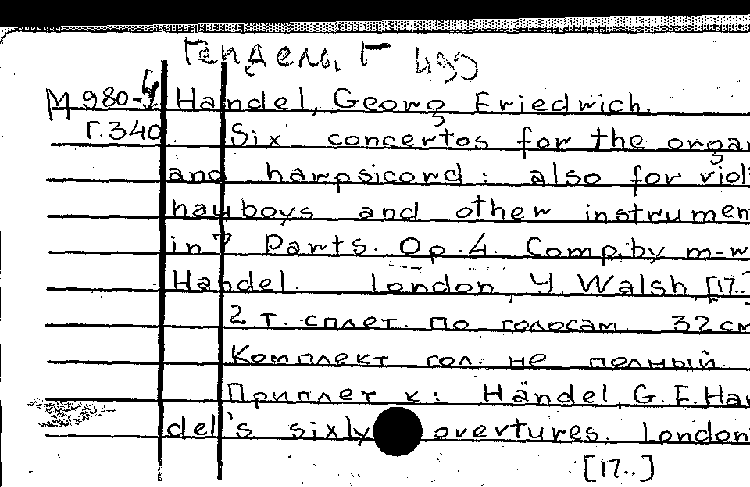 Гендель, Г 499
М 980-4 Händel, Georg Friedrich.
Г.340 Six concertos for the organ
and harpsicord: also for viol
hauboys and other instrumen
in 7 Parts. Op.4. Comp. by m-w
Handel. London, Y. Walsh, [17..]
2 т. сплет. по голосам. 32 см
Комплект гол. не полный.
Приплет к: Händel, G.F. Han
del's sixty overtures. London
[17..]